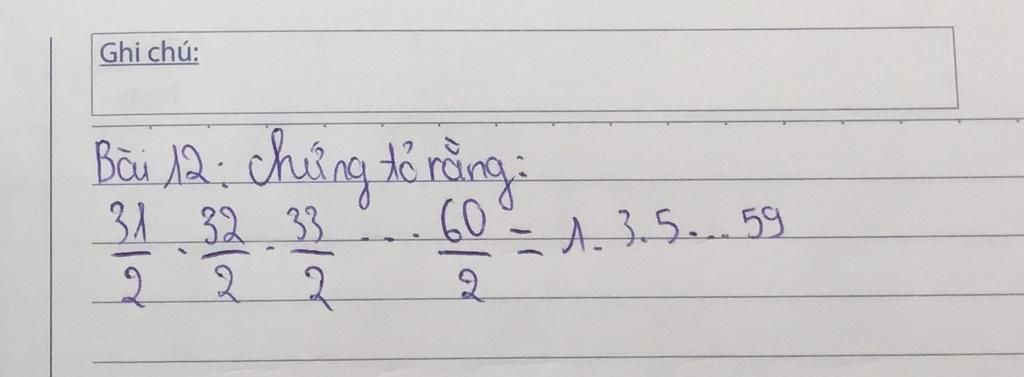 Ghi chú:
Bài 12: Chứng tỏ rằng:
31/2 . 32/2 . 33/2 .... 60/2 = 1. 3. 5... 59